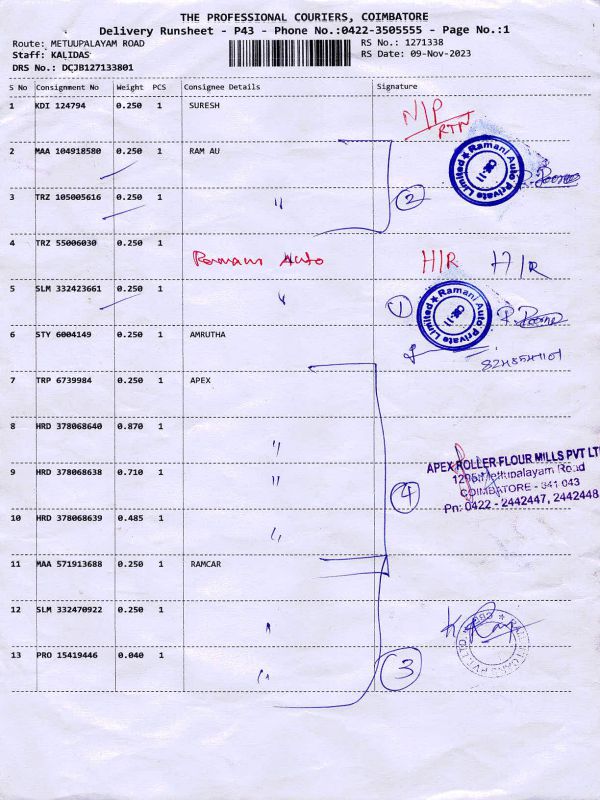 THE PROFESSIONAL COURIERS, COIMBATORE
Delivery Runsheet - P43 - Phone No.:0422-3505555 - Page No.:1
Route: METUUPALAYAM ROAD
Staff: KALIDAS
DRS No.: DCJB127133801
RS No.: 1271338
RS Date: 09-Nov-2023
S No Consignment No Weight PCS Consignee Details Signature
1 KDI 124794 0.250 1 SURESH N/P RTN
2 MAA 104918580 0.250 1 RAM AU
Ramani Auto Private Limited
3 TRZ 105005616 0.250 1 " 2
4 TRZ 55006030 0.250 1 Ramani Auto H/R H/R
5 SLM 332423661 0.250 1 " 1
Ramani Auto Private Limited
6 STY 6004149 0.250 1 AMRUTHA
7 TRP 6739984 0.250 1 APEX
8 HRD 378068640 0.870 1 "
9 HRD 378068638 0.710 1 " 4
APEX ROLLER FLOUR MILLS PVT LT
1296, Mettupalayam Road
COIMBATORE - 641 043
Pn: 0422 - 2442447, 2442448
10 HRD 378068639 0.485 1 "
11 MAA 571913688 0.250 1 RAMCAR
12 SLM 332470922 0.250 1 "
13 PRO 15419446 0.040 1 " 3